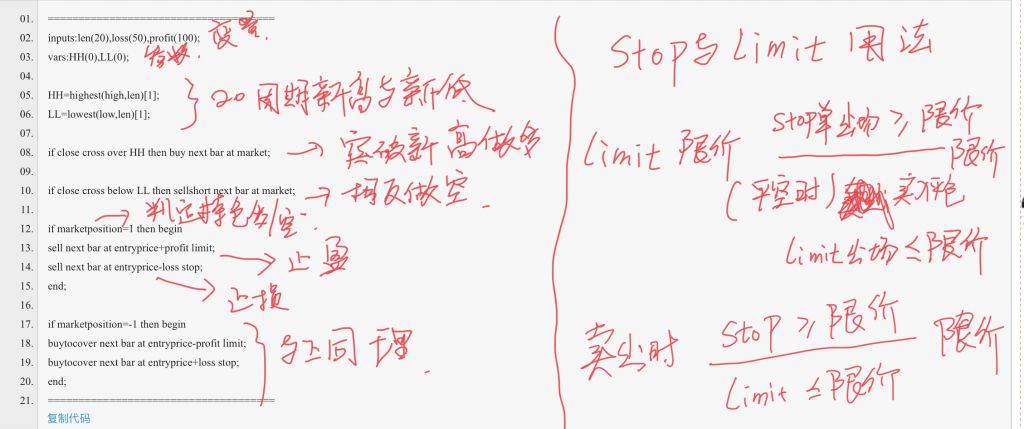 01. ===================================
02. inputs:len(20),loss(50),profit(100);
变量.
03. vars:HH(0),LL(0);
04.
05. HH=highest(high,len)[1];
20周期新高与新低
06. LL=lowest(low,len)[1];
07.
08. if close cross over HH then buy next bar at market;
突破新高做多
09.
10. if close cross below LL then sellshort next bar at market;
相反做空.
11.
判定持仓多/空.
12. if marketposition=1 then begin
13. sell next bar at entryprice+profit limit;
止盈
14. sell next bar at entryprice-loss stop;
止损
15. end;
16.
17. if marketposition=-1 then begin
18. buytocover next bar at entryprice-profit limit;
与上同理.
19. buytocover next bar at entryprice+loss stop;
20. end;
21. ===================================
复制代码
Stop与Limit用法
Stop单出场≥限价
Limit 限价 限价
(平空时) 买平仓
Limit出场≤限价
Stop≥限价
卖出时 限价
Limit≤限价